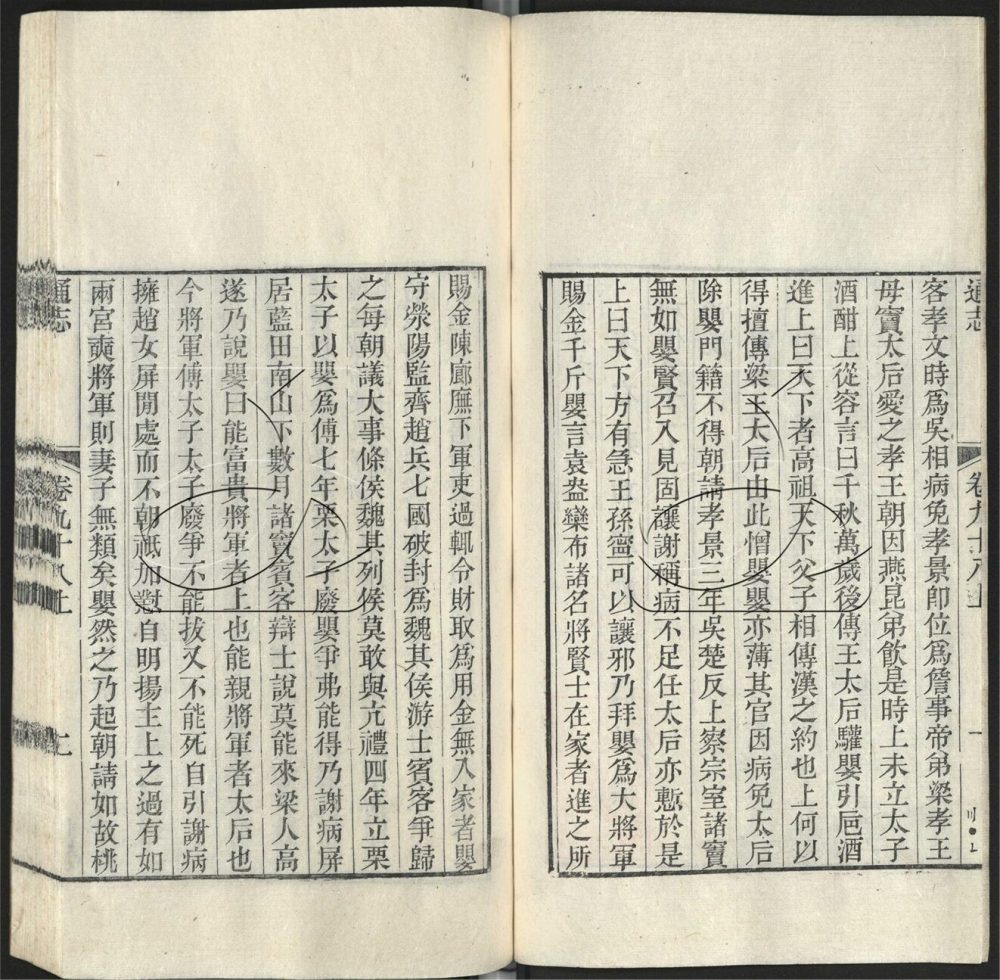 通志
卷九十八上
一
客孝文時爲吳相病免孝景卽位爲詹事帝弟梁孝王
母竇太后愛之孝王朝因燕昆弟飮是時上未立太子
酒酣上從容言曰千秋萬歲後傳王太后驩嬰引卮酒
進上曰天下者高祖天下父子相傳漢之約也上何以
得擅傳梁王太后由此憎嬰嬰亦薄其官因病免太后
除嬰門籍不得朝請孝景三年吳楚反上察宗室諸竇
無如嬰賢召入見固讓謝稱病不足任太后亦慙於是
上曰天下方有急王孫寧可以讓邪乃拜嬰爲大將軍
賜金千斤嬰言袁盎欒布諸名將賢士在家者進之所
賜金陳廊廡下軍吏過輒令財取爲用金無入家者嬰
守滎陽監齊趙兵七國破封爲魏其侯游士賓客爭歸
之每朝議大事條侯魏其列侯莫敢與亢禮四年立栗
太子以嬰爲傅七年栗太子廢嬰爭弗能得乃謝病屏
居藍田南山下數月諸竇賓客辯士說莫能來梁人高
遂乃說嬰曰能富貴將軍者上也能親將軍者太后也
今將軍傅太子太子廢爭不能拔又不能死自引謝病
擁趙女屏閒處而不朝祗加懟自明揚主上之過有如
兩宮奭將軍則妻子無類矣嬰然之乃起朝請如故桃
通志
卷九十八上
二